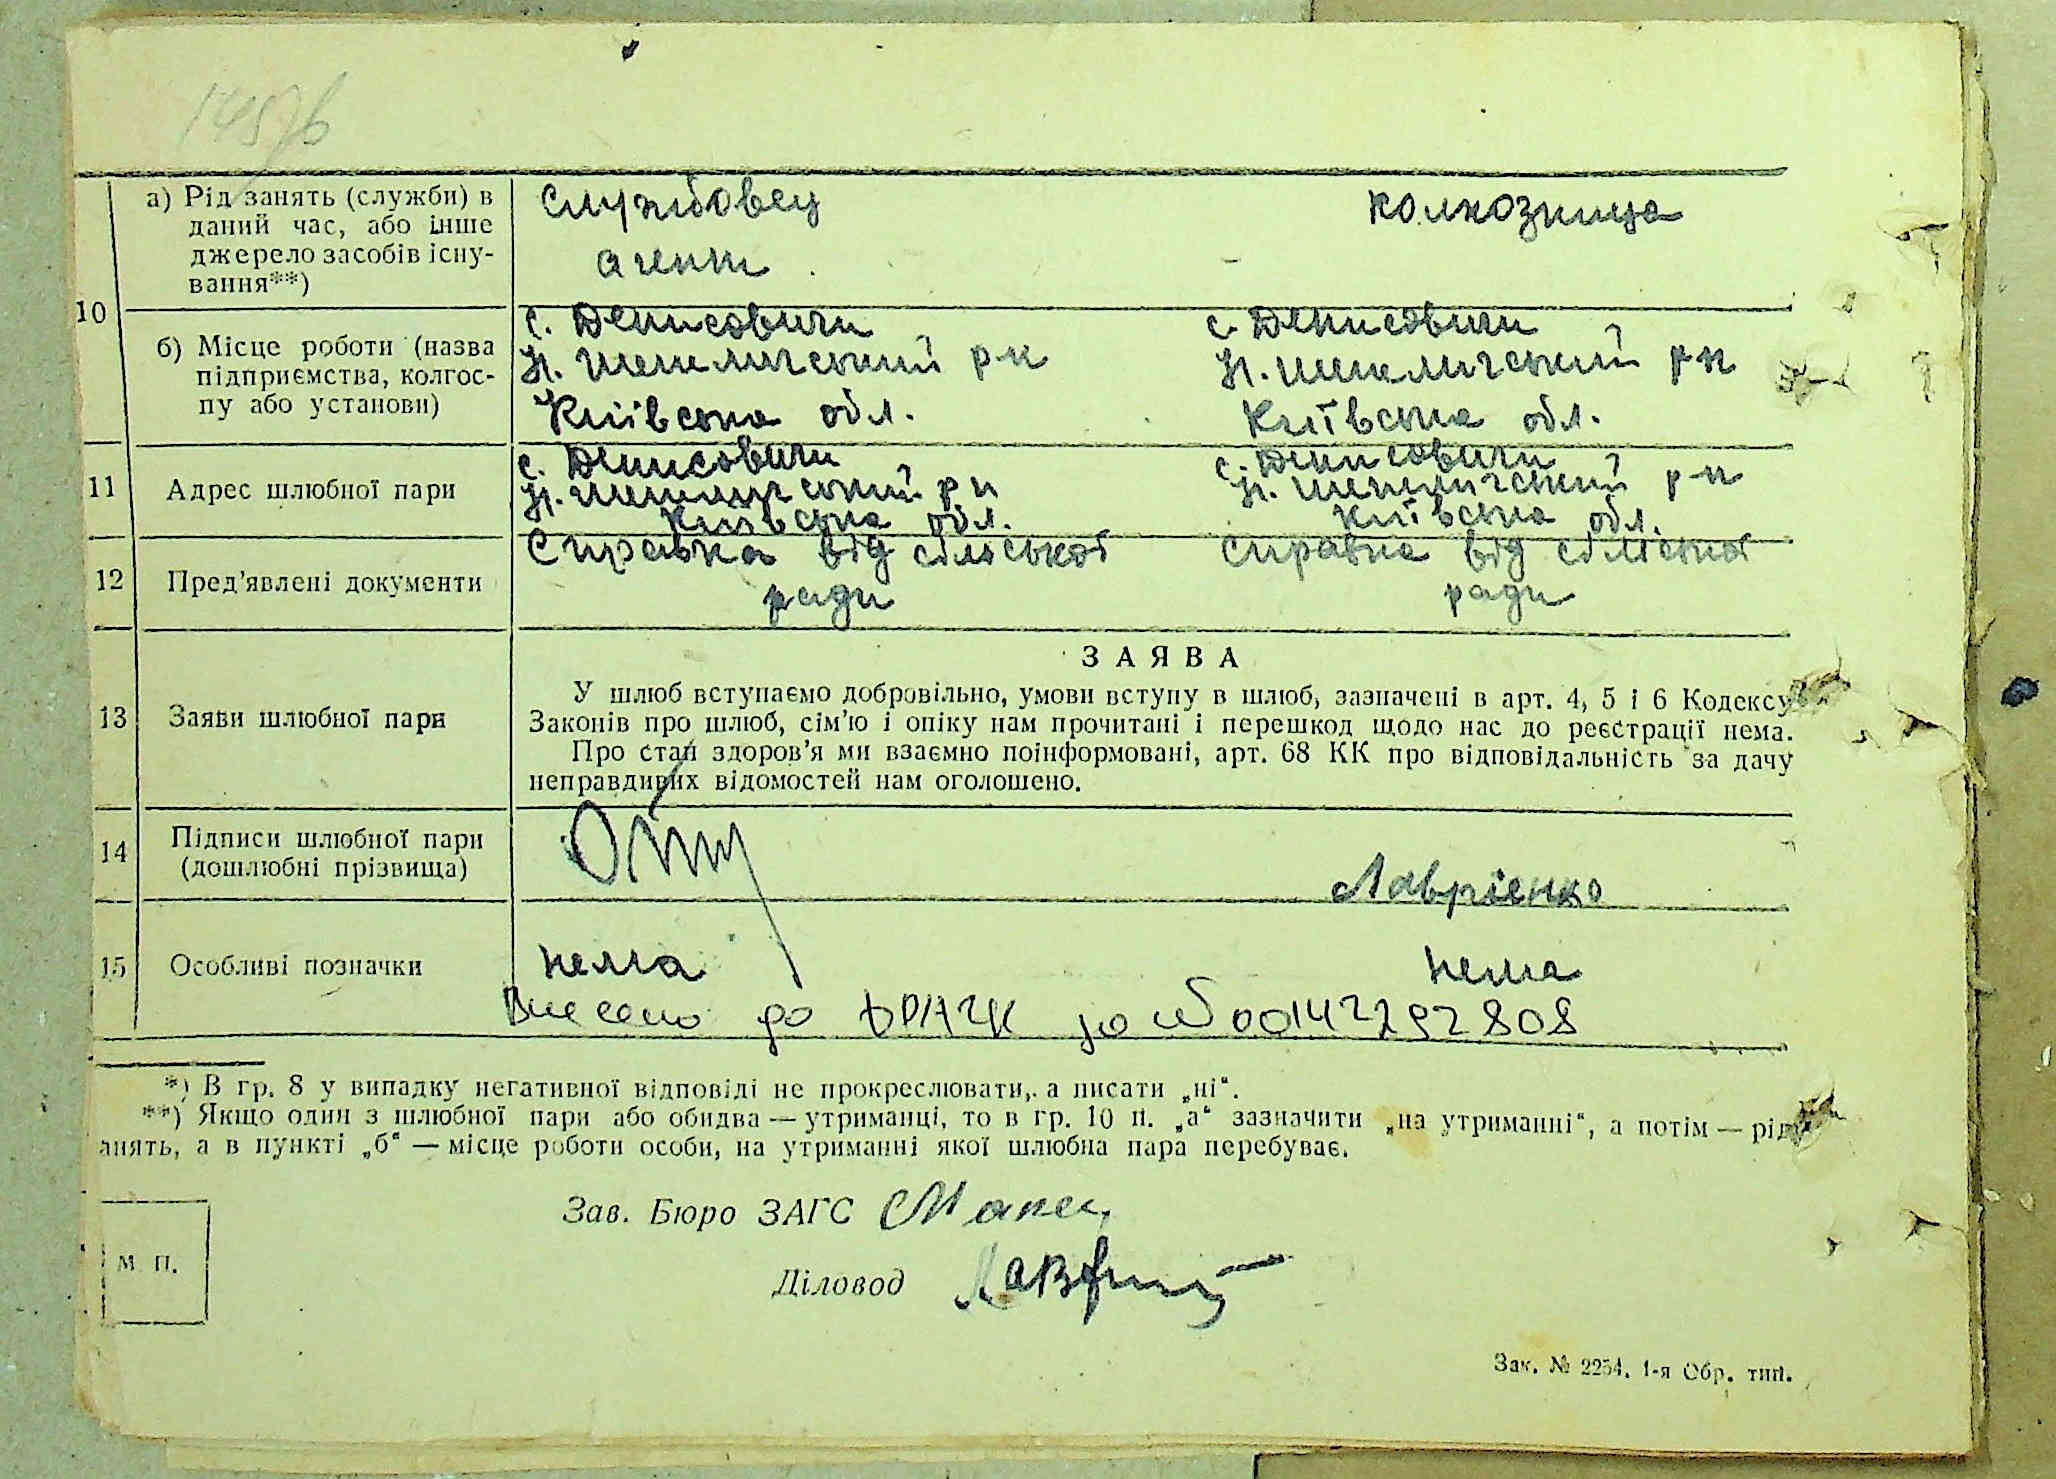 1457б
10
а) Рід занять (служби) в
даний час, або інше
джерело засобів існу-
вання**)
службовец
агент
колхозница
б) Місце роботи (назва
підприємства, колгос-
пу або установи)
с. Денисовичи
Н. Шепеличський р-н
Київська обл.
с. Денисовичи
Н. Шепеличський р-н
Київська обл.
11
Адрес шлюбної пари
с. Денисовичи
Н. Шепеличський р-н
Київська обл.
с. Денисовичи
Н. Шепеличський р-н
Київська обл.
12
Пред’явлені документи
Справка від сільської
ради
Справка від сільської
ради
13
Заяви шлюбної пари
ЗАЯВА
У шлюб вступаємо добровільно, умови вступу в шлюб, зазначені в арт. 4, 5 і 6 Кодексу
Законів про шлюб, сім’ю і опіку нам прочитані і перешкод щодо нас до реєстрації нема.
Про стан здоров’я ми взаємно поінформовані, арт. 68 КК про відповідальність за дачу
неправдивих відомостей нам оголошено.
14
Підписи шлюбної пари
(дошлюбні прізвища)
Лаврієнко
15
Особливі позначки
нема
нема
Внесено до ДРАЦС за № 00142292808
*) В гр. 8 у випадку негативної відповіді не прокреслювати, а писати „ні“.
**) Якщо один з шлюбної пари або обидва — утриманці, то в гр. 10 п. „а“ зазначити „на утриманні“, а потім — рід
анять, а в пункті „б“ — місце роботи особи, на утриманні якої шлюбна пара перебуває.
Зав. Бюро ЗАГС
Діловод
М. П.
Зак. № 2254. 1-я Обр. тип.